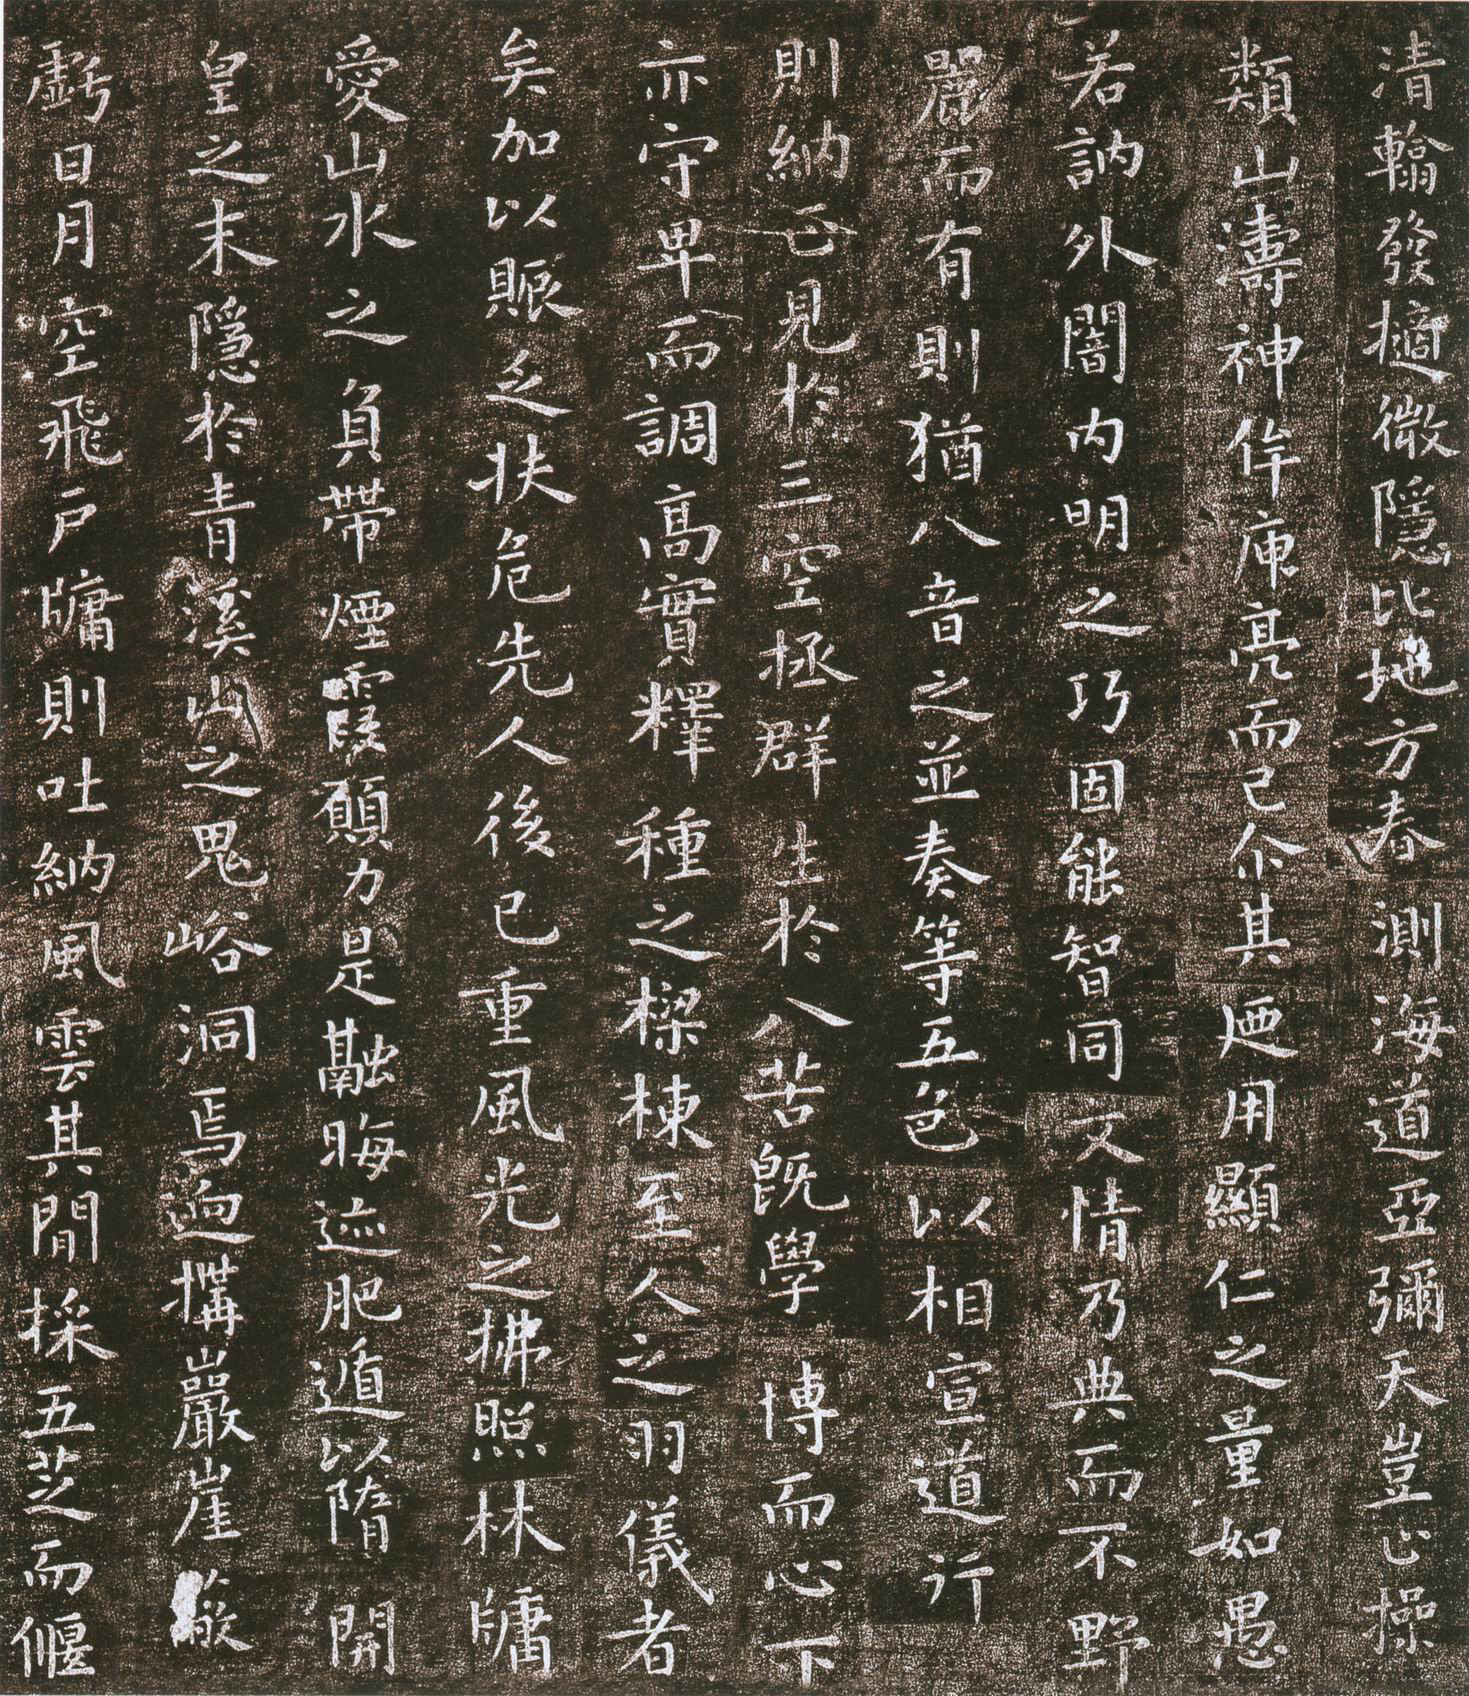 清翰發擿微隱比地方春測海道亞彌天豈止操
類山濤神侔庾亮而已尒其廼用顯仁之量如愚
若訥外闇內明之巧固能智同文情乃典而不野
麗而有則猶八音之並奏等五色以相宣道行
則納正見於三空拯群生於八苦旣學博而心下
亦守卑而調高實釋種之樑棟至人之羽儀者
矣加以賑乏扶危先人後己重風光之拂照林牗
愛山水之負帶煙霞願力是融晦迹肥遁以隋開
皇之末隱於青溪山之鬼峪洞焉逈搆巖崖蔽
虧日月空飛戶牗則吐納風雲其間採五芝而偃